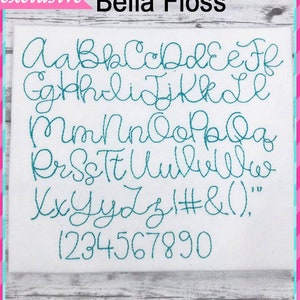 exclusive
Bella Floss
AaBbCcDdEeFf
GgHhIiJjKkLl
MmNnOoPpQq
RrSsTtUuVvWw
XxYyZz!#&();'"
1234567890